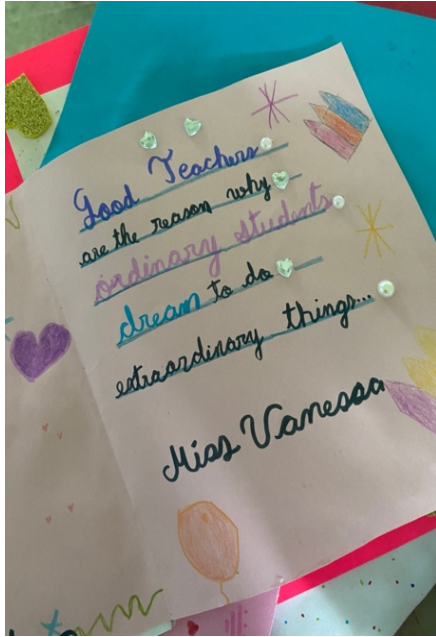 Good Teachers
are the reason why
ordinary students
dream to do
extraordinary things...
Miss Vanessa